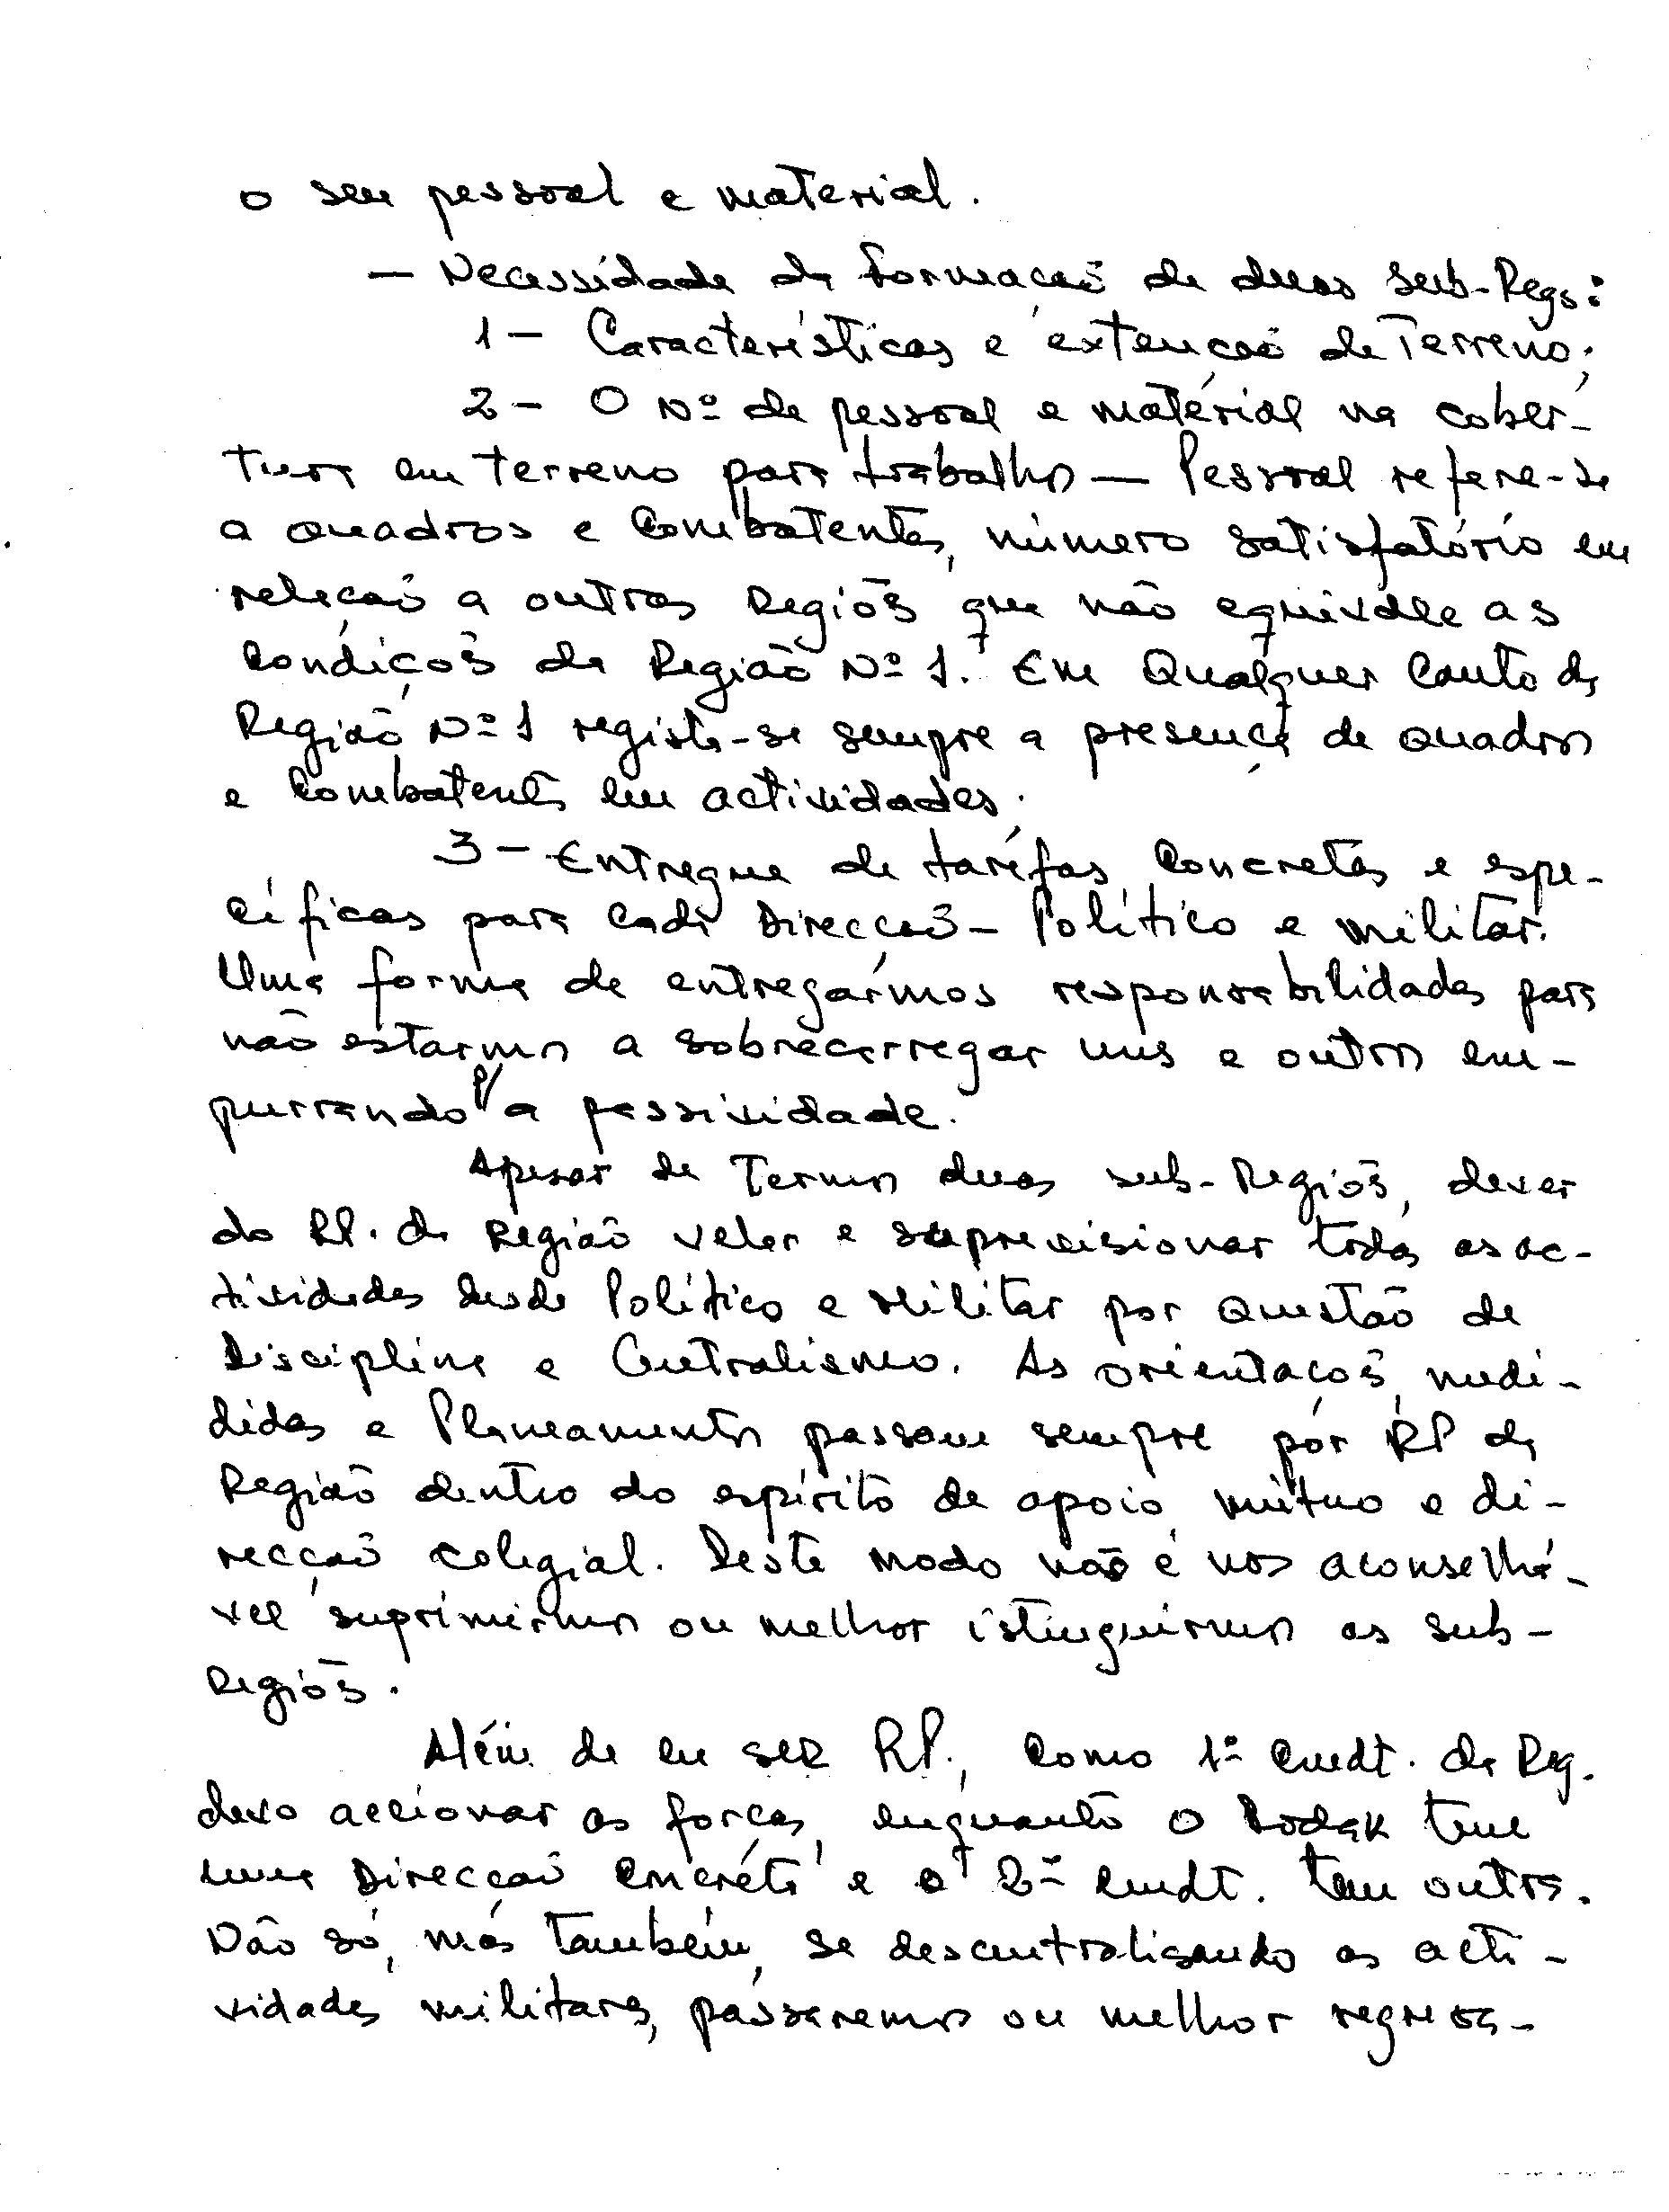 o seu pessoal e material.
— Necessidade da formação de duas Sub-Regs:
1 - Características e extenção de Terreno;
2 - O Nº de pessoal e matérial na cober-
tura em terreno para trabalho — Pessoal refere-se
a quadros e Combatentes, número satisfatório em
relação a outras Regiõs que não equivale as
Condiçõs da Região Nº 1. Em Qualquer Canto da
Região Nº 1 regista-se sempre a presença de quadros
e Combatents em actividades.
3 - Entregue de taréfas Concretas e espe-
cíficas para Cada Direcção - Político e militar.
Uma forma de entregármos responsabilidades para
não estarmos a sobrecarregar uns e outros em-
purrando p/ a passividade.
Apesar de Termos duas sub-Regiõs, dever
do RP. da Região velar e suprevisionar todas as ac-
tividades desde Político e Militar por Questão de
Disciplina e Centralismo. As orientaçõs, medi-
didas e Planeamentos passam sempre pór RP da
Região dentro do espírito de apoio mútuo e di-
recção colegial. Deste modo não é nos aconselhá-
vel suprimirmos ou melhor istinguirmos as sub-
Regiõs.
Além de eu ser RP., Como 1º Cmdt. da Reg.
devo accionar as forças, enquanto o Bodak tem
uma Direcção Concréta e o 2º Cmdt. tem outra.
Não só, más também, se descentralisando as acti-
vidades militares, pássaremos ou melhor regressa-